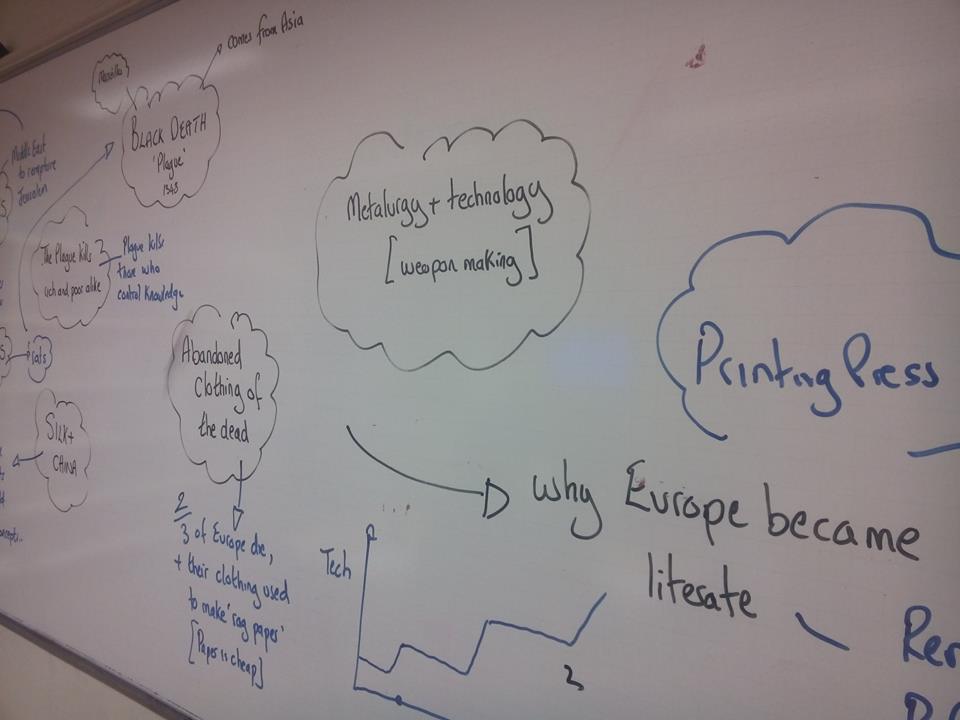 comes from Asia
BLACK DEATH
'Plague'
Middle East
to recapture
Jerusalem
The Plague kills
rich and poor alike
Plague kills
those who
control knowledge
rats
SILK +
CHINA
Abandoned
clothing of
the dead
2/3 of Europe die,
+ their clothing used
to make 'rag paper'
[Paper is cheap]
Metalurgy + technology
[weapon making]
Printing Press
why Europe became
literate
Tech
Ren